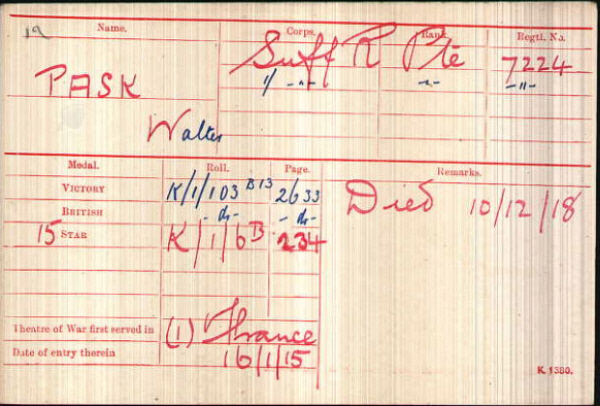 19
Name. Corps. Rank. Regtl. No.
PASK Suff R Pte 7224
1/ -"- -"- -"-
Walter
Medal. Roll. Page. Remarks.
VICTORY K/1/103 B13 2633 Died 10/12/18
BRITISH -do- -do-
15 STAR K/1/6B 234
Theatre of War first served in (1) France
Date of entry therein 16/1/15
K. 1380.